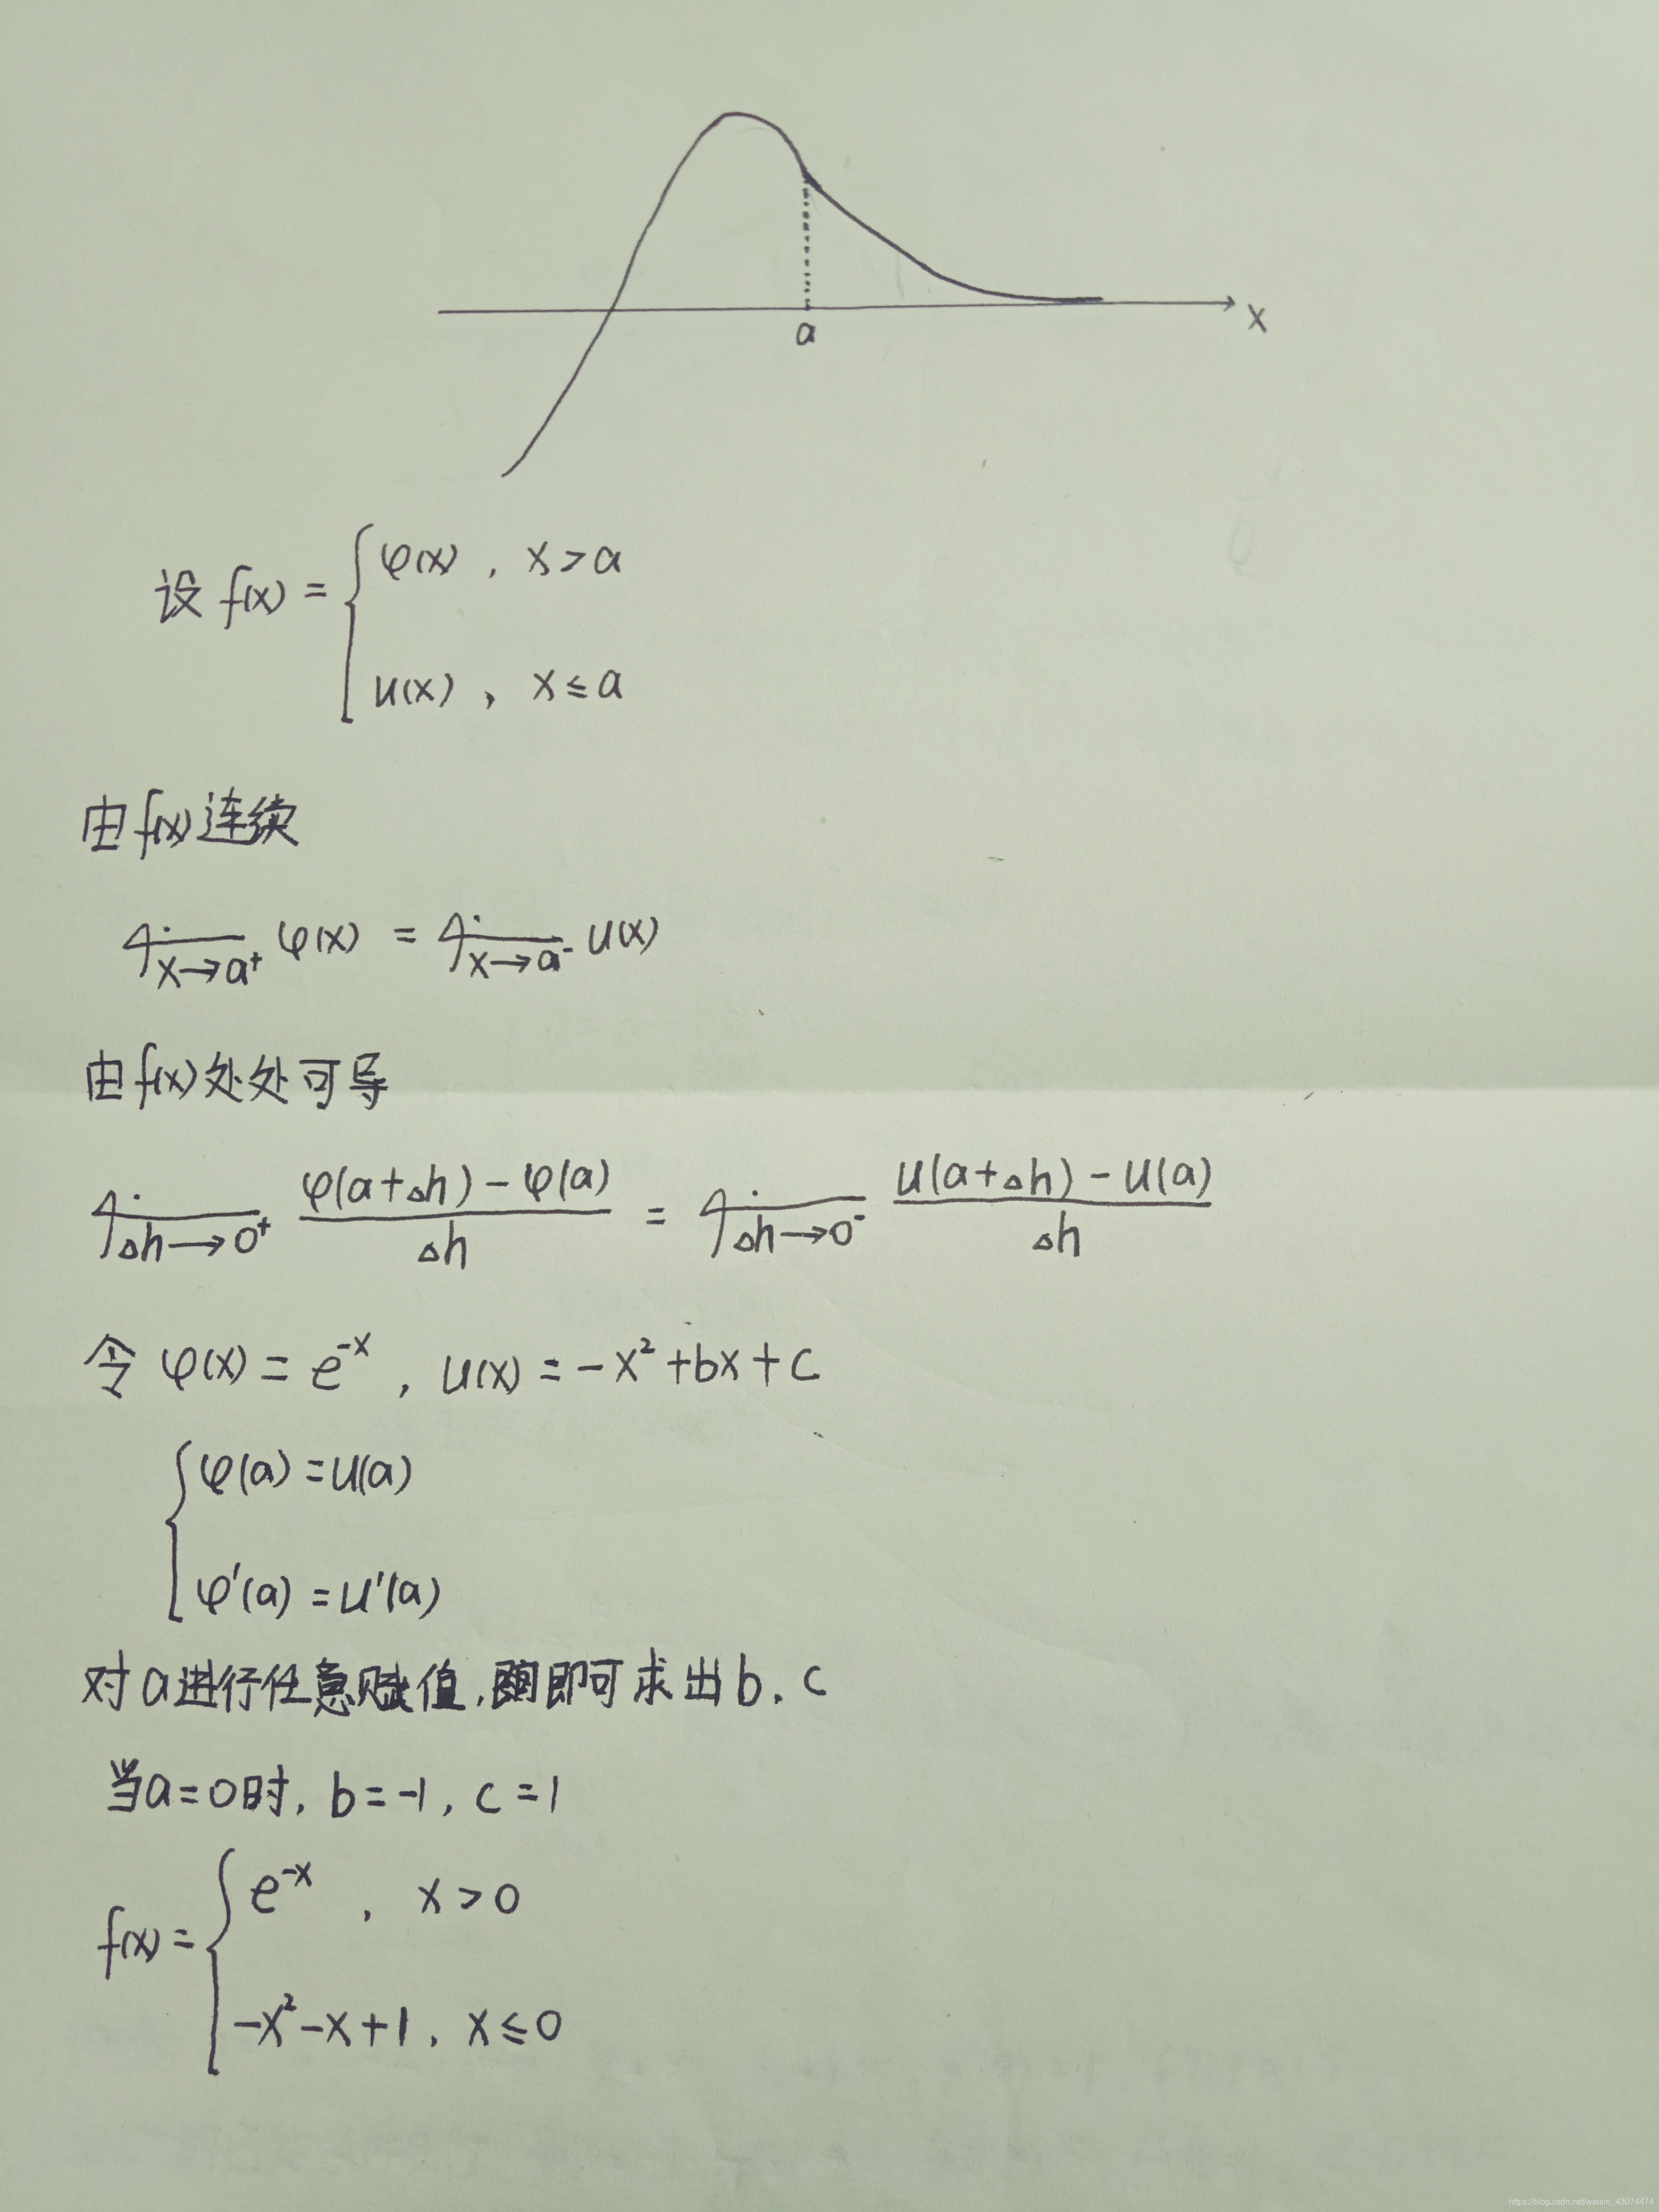 x
a
设 f(x) = { φ(x) , x > a
u(x) , x ≤ a
由 f(x) 连续
lim x→a⁺ φ(x) = lim x→a⁻ u(x)
由 f(x) 处处可导
lim Δh→0⁺ (φ(a+Δh) - φ(a)) / Δh = lim Δh→0⁻ (u(a+Δh) - u(a)) / Δh
令 φ(x) = e⁻ˣ , u(x) = -x² + bx + c
{ φ(a) = u(a)
φ'(a) = u'(a)
对 a 进行任意赋值, 即可求出 b, c
当 a = 0 时, b = -1, c = 1
f(x) = { e⁻ˣ , x > 0
-x² - x + 1, x ≤ 0
https://blog.csdn.net/weixin_43074474